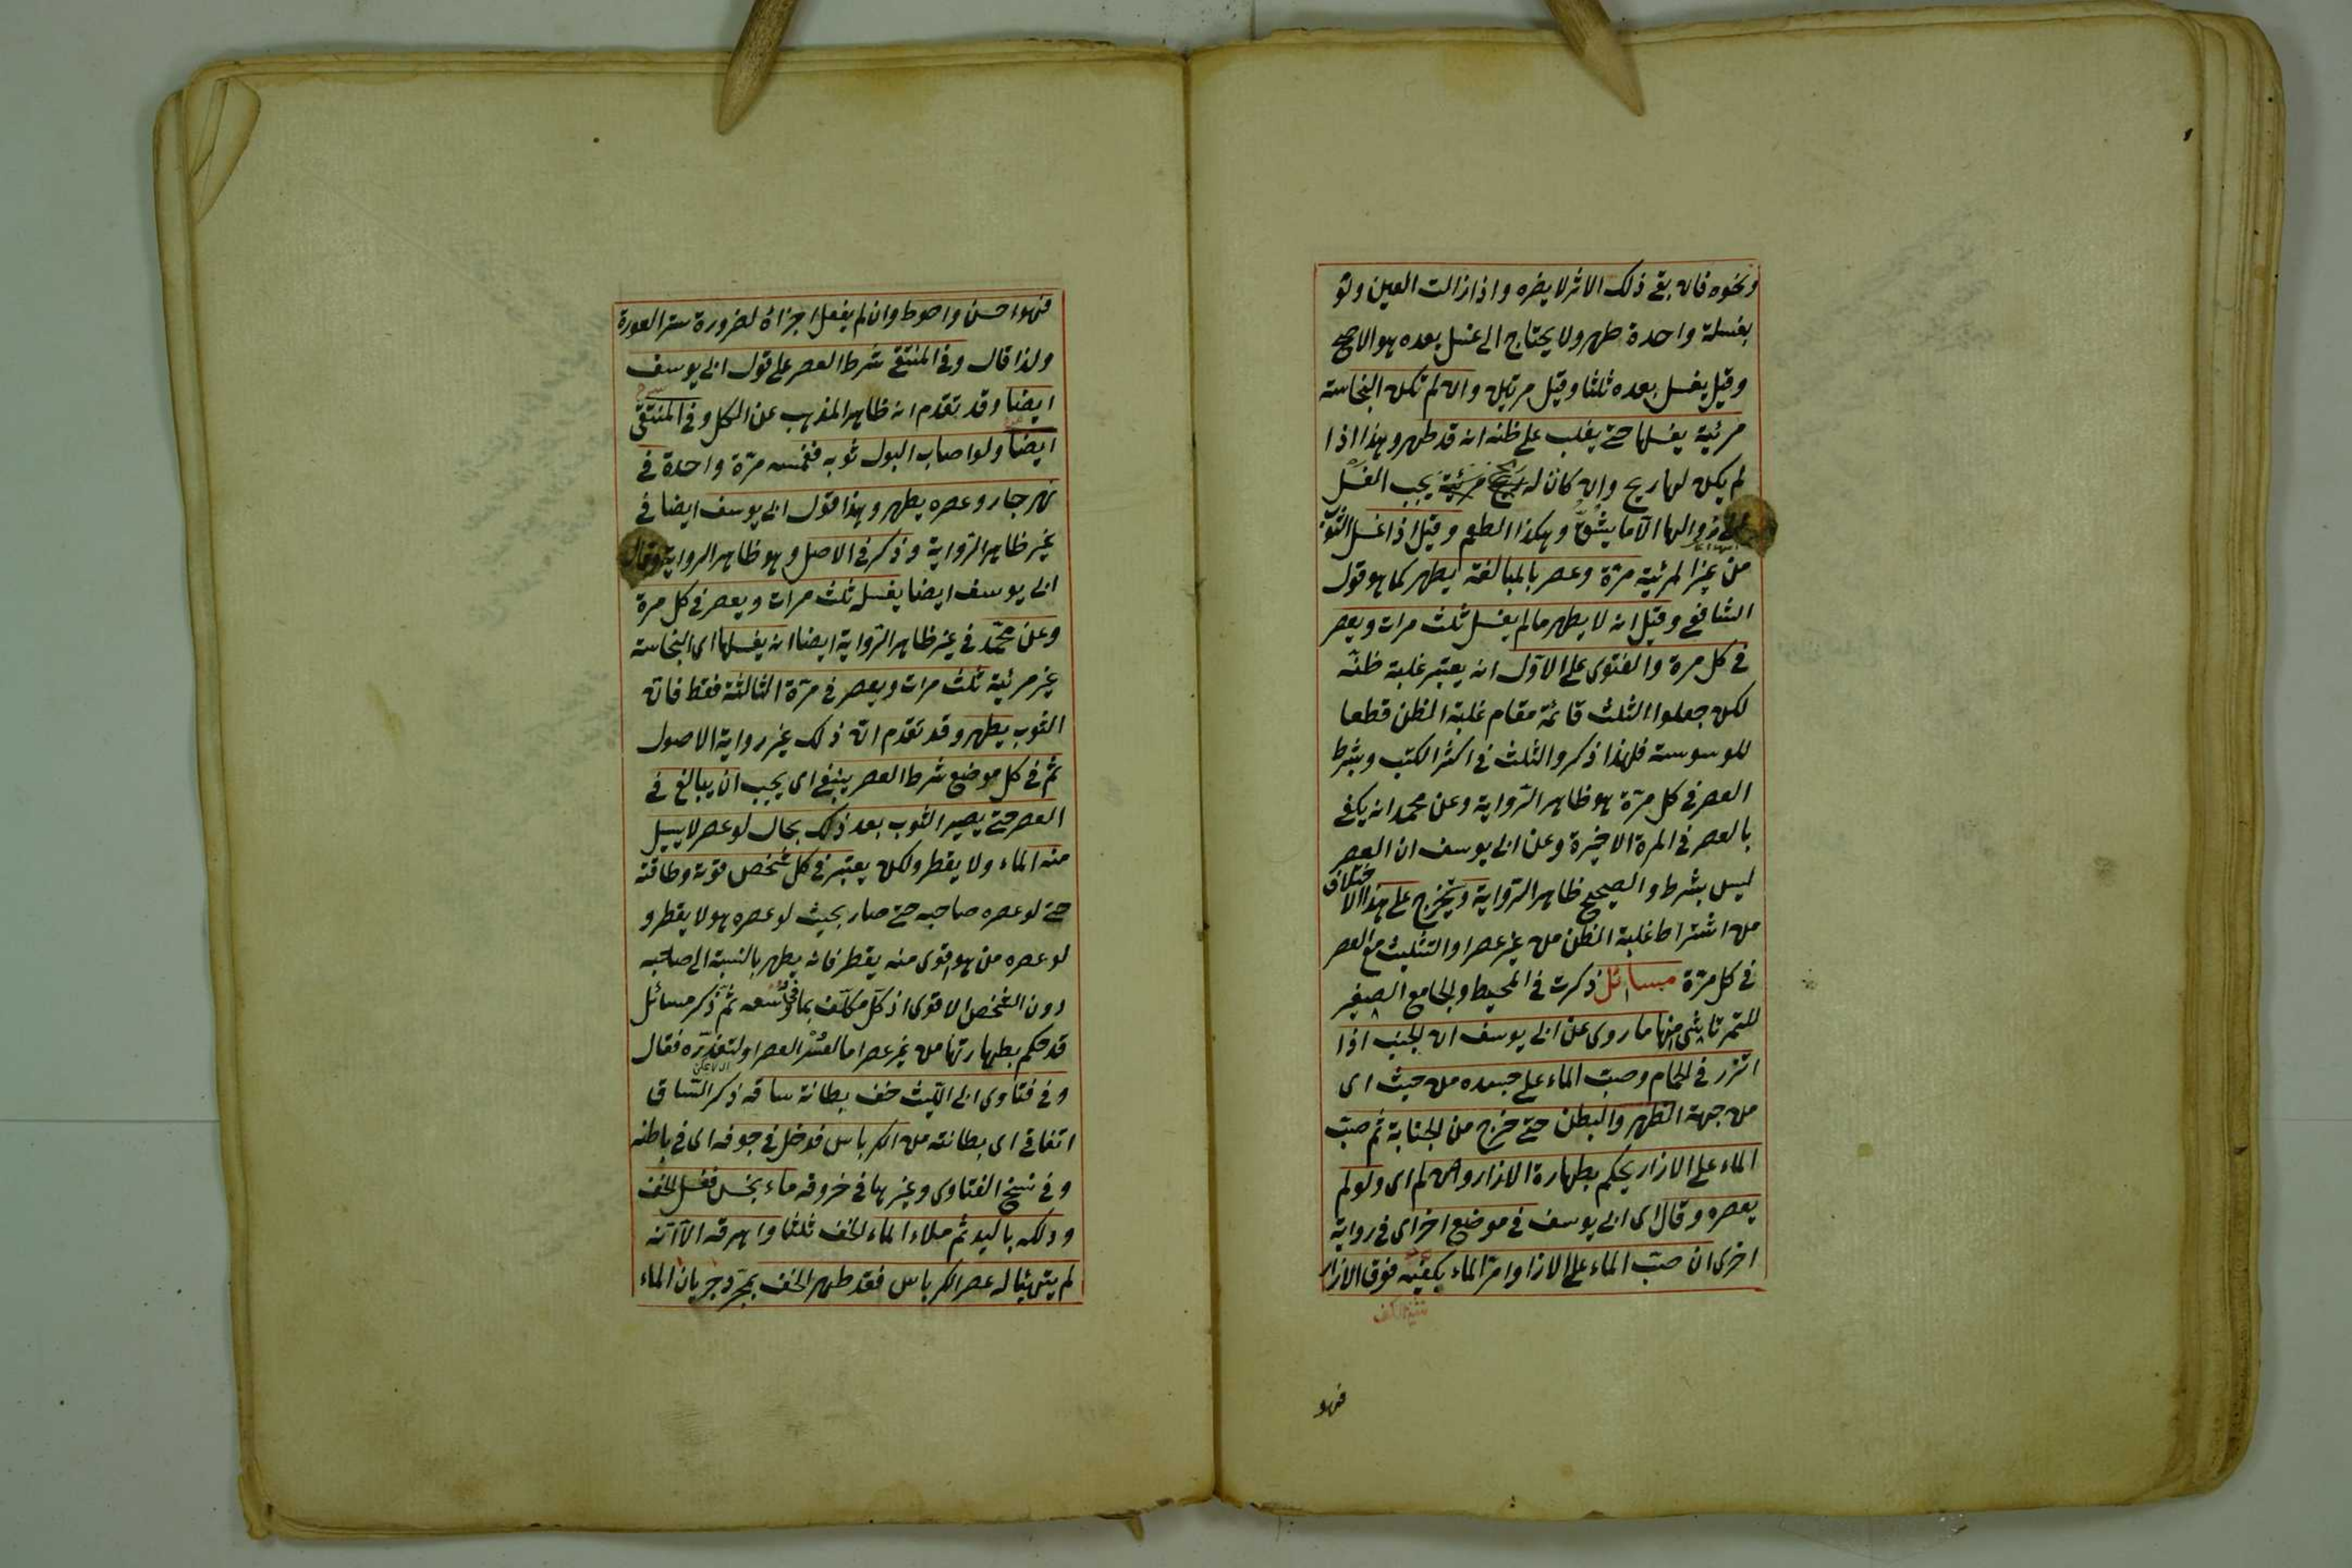 ونحوه فان بقى ذلك الاثر لا يضره واذا زالت العين ولو
بغسلة واحدة طهر ولا يحتاج الى غسل بعده هو الاصح
وقيل يغسل بعده ثلثا وقيل مرتين وان لم تكن النجاسة
مرئية يغسلها حتى يغلب على ظنه انه قد طهر وهذا اذا
لم يكن لها ريح وان كان له ريح يجب الغسل
زوالها الا ما يشق وهكذا الطعم وقيل اذا غسل الثوب
من غير المرئية مرة وعصر بالمبالغة يطهر كما هو قول
الشافعي وقيل انه لا يطهر ما لم يغسل ثلث مرات ويعصر
في كل مرة والفتوى على الاول انه يعتبر غلبة ظنه
لكن جعلوا الثلث قائمة مقام غلبة الظن قطعا
للوسوسة فلهذا ذكروا الثلث في اكثر الكتب ويشرط
العصر في كل مرة هو ظاهر الرواية وعن محمد انه يكفى
بالعصر في المرة الاخيرة وعن ابى يوسف ان العصر
ليس بشرط والصحيح ظاهر الرواية ويتخرج على هذا الاختلاف
من اشتراط غلبة الظن من غير عصر او التثليث مع العصر
في كل مرة مسائل ذكرت في المحيط والجامع الصغير
للتمرتاشى منها ما روى عن ابى يوسف ان الجنب اذا
اتزر في الحمام وصب الماء على جسده من حيث اى
من جهة الظهر والبطن حتى خرج من الجنابة ثم صب
الماء على الازار يحكم بطهارة الازار وان لم اى ولو لم
يعصره وقال اى ابى يوسف في موضع اخر اى في رواية
اخرى ان صب الماء على الازار وامر الماء بكفيه فوق الازار
فهو
فهو احسن واحوط وان لم يفعل اجزاه لضرورة ستر العورة
ولذا قال وفى المنتقى شرط العصر على قول ابى يوسف
ايضا وقد تقدم انه ظاهر المذهب عن الكل وفى المنتقى
ايضا ولو اصاب البول ثوبه فغمسه مرة واحدة في
نهر جار وعصره يطهر وهذا قول ابى يوسف ايضا في
غير ظاهر الرواية وذكر في الاصل وهو ظاهر الرواية وقال
ابى يوسف ايضا يغسله ثلث مرات ويعصر في كل مرة
وعن محمد في غير ظاهر الرواية ايضا انه يغسلها اى النجاسة
غير مرئية ثلث مرات ويعصر في مرة الثالثة فقط فانه
الثوب يطهر وقد تقدم ان ذلك غير رواية الاصول
ثم في كل موضع شرط العصر ينبغى اى يجب ان يبالغ في
العصر حتى يصير الثوب بعد ذلك بحال لو عصر لا يسيل
منه الماء ولا يقطر ولكن يعتبر في كل شخص قوته وطاقته
حتى لو عصره صاحبه حتى صار بحيث لو عصره هو لا يقطر و
لو عصره من هو اقوى منه يقطر فانه يطهر بالنسبة الى صاحبه
دون الشخص الاقوى اذ كل مكلف بما في وسعه ثم ذكر مسائل
قد حكم بطهارتها من غير عصر اما لعسر العصر او لتعذره فقال
وفى فتاوى ابى الليث خف بطانة ساقه ذكر الساق
اتفاقى اى بطانته من الكرباس فدخل في جوفه اى في باطنه
وفى نسخ الفتاوى وغيرها في خروقه ماء نجس فغسل الخف
ودلكه باليد ثم ملاء الماء الخف ثلثا واهرقه الا انه
لم يتهيئا له عصر الكرباس فقد طهر الخف بمجرد جريان الماء